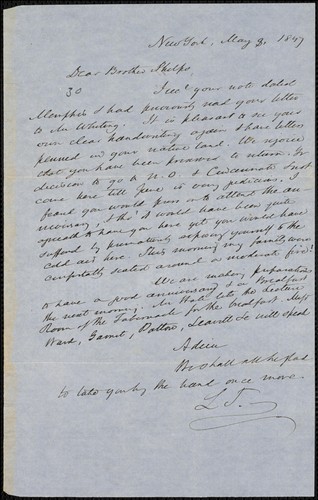 New York, May 8, 1847
Dear Brother Phelps,
30 I rec'd your note dated
Memphis & had previously read your letter
to Mr Whiting. It is pleasant to see your
own clear handwriting again & have letters
penned in your native land. We rejoice
that you have been preserved to return. Your
decision to go to N. O. & Cincinnati & not
come here till June is very judicious. I
feared you would press on to attend the an-
niversary, & tho' I would have been quite
rejoiced to have you here yet you would have
suffered by prematurely exposing yourself to the
cold air here. This morning my family were
comfortably seated around a moderate fire!
We are making preparations
to have a good anniversary & a Breakfast
the next morning. Mr Hale lets the Lecture
Room of the Tabernacle for the breakfast. Messrs
Ward, Garnet, Patton, Leavitt &c will speak
Adieu
We shall all be glad
to take you by the hand once more.
L. T.